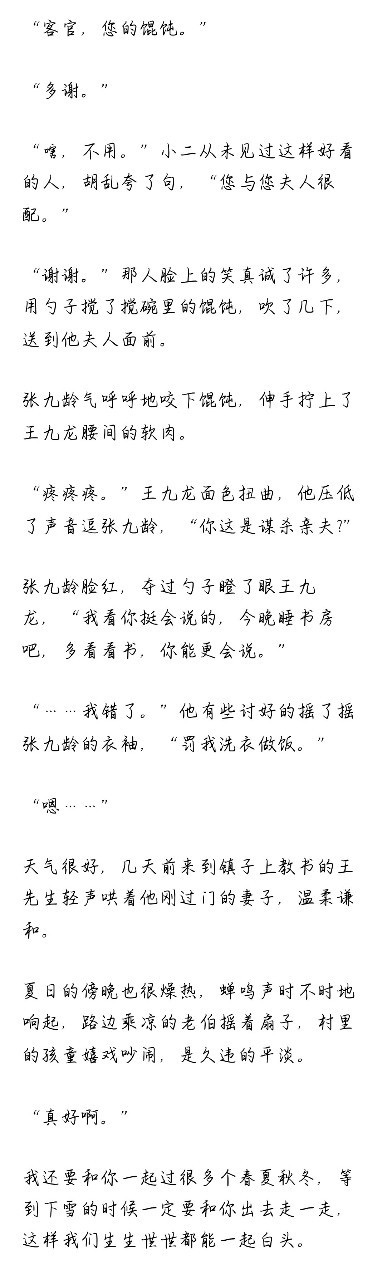 “客官，您的馄饨。”
“多谢。”
“啥，不用。”小二从未见过这样好看
的人，胡乱夸了句，“您与您夫人很
配。”
“谢谢。”那人脸上的笑真诚了许多，
用勺子搅了搅碗里的馄饨，吹了几下，
送到他夫人面前。
张九龄气呼呼地咬下馄饨，伸手拧上了
王九龙腰间的软肉。
“疼疼疼。”王九龙面色扭曲，他压低
了声音逗张九龄，“你这是谋杀亲夫?”
张九龄脸红，夺过勺子瞪了眼王九
龙，“我看你挺会说的，今晚睡书房
吧，多看看书，你能更会说。”
“……我错了。”他有些讨好的摇了摇
张九龄的衣袖，“罚我洗衣做饭。”
“嗯……”
天气很好，几天前来到镇子上教书的王
先生轻声哄着他刚过门的妻子，温柔谦
和。
夏日的傍晚也很燥热，蝉鸣声时不时地
响起，路边乘凉的老伯摇着扇子，村里
的孩童嬉戏吵闹，是久违的平淡。
“真好啊。”
我还要和你一起过很多个春夏秋冬，等
到下雪的时候一定要和你出去走一走，
这样我们生生世世都能一起白头。